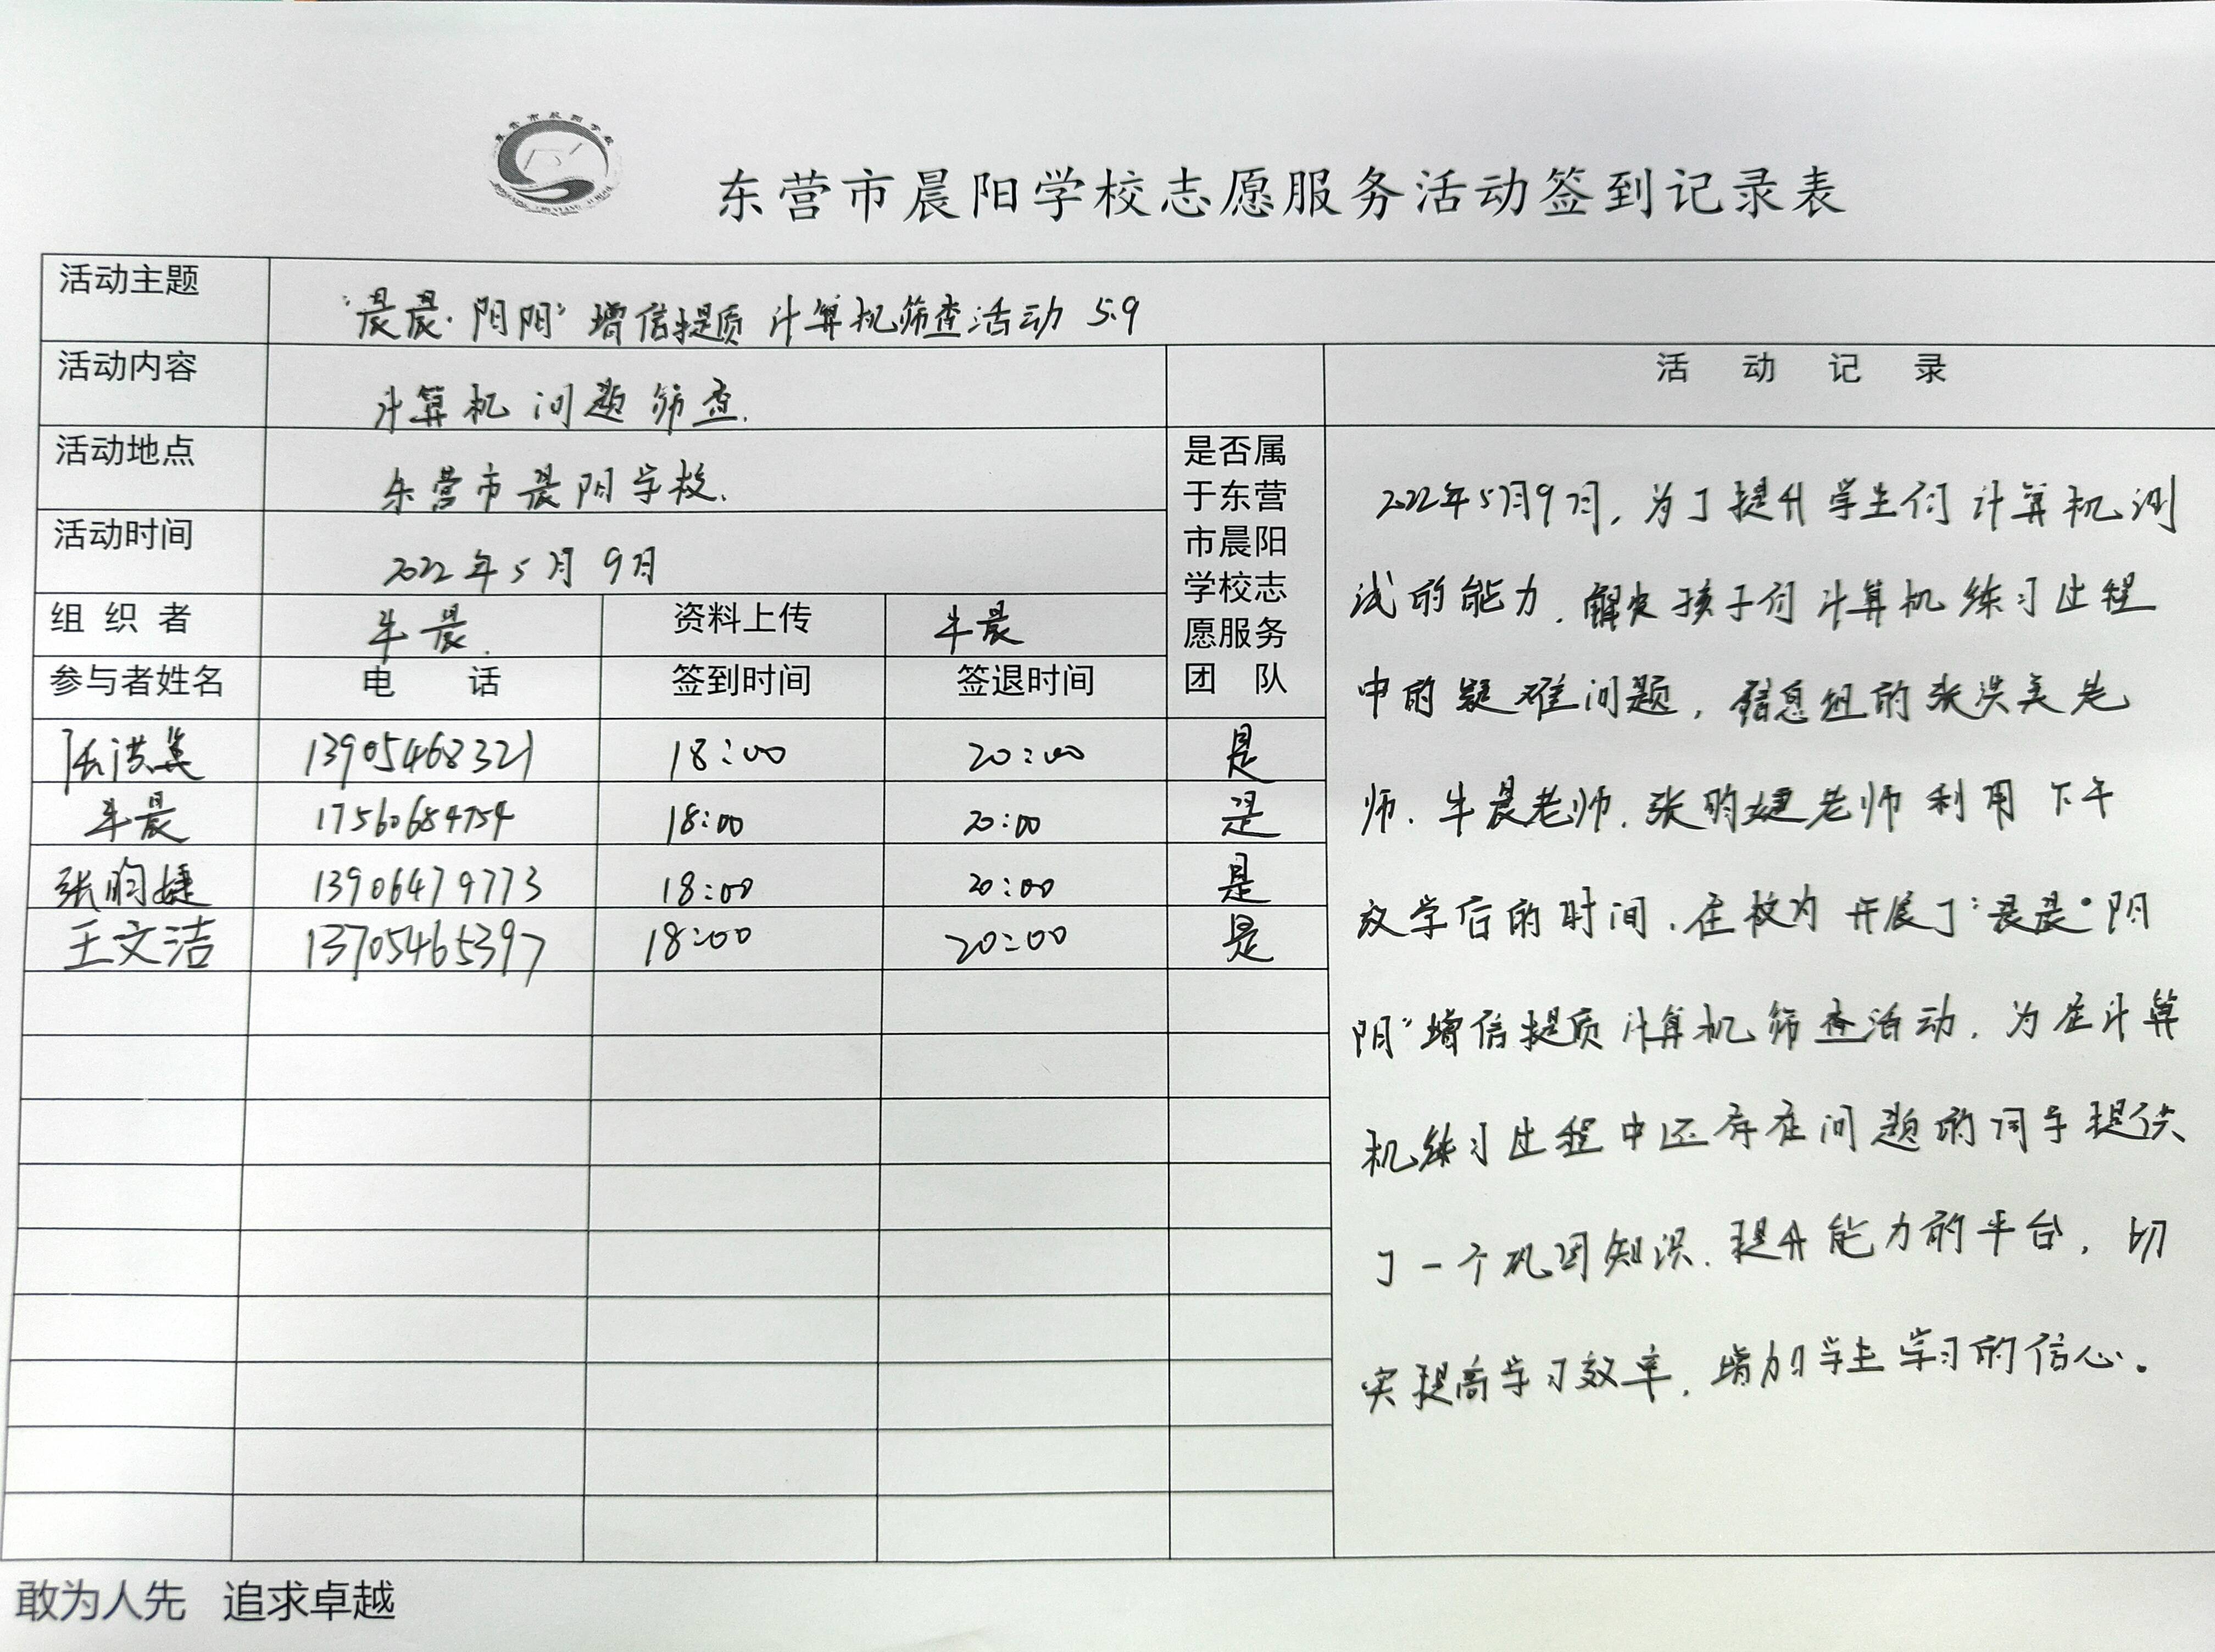 东营市晨阳学校志愿服务活动签到记录表
活动主题 “晨晨·阳阳”增信提质 计算机筛查活动 5.9
活动内容 计算机问题筛查. 活动记录
活动地点 东营市晨阳学校.
活动时间 2022年5月9日
是否属
于东营
市晨阳
学校志
愿服务
团 队
组织者 牛晨. 资料上传 牛晨
参与者姓名 电 话 签到时间 签退时间
张洪美 13905468321 18:00 20:00 是
牛晨 17560684754 18:00 20:00 是
张昀婕 13906479773 18:00 20:00 是
王文洁 13705465397 18:00 20:00 是
2022年5月9日,为了提升学生们计算机测
试的能力.解决孩子们计算机练习过程
中的疑难问题,信息组的张洪美老
师.牛晨老师.张昀婕老师利用下午
放学后的时间.在校内开展了“晨晨·阳
阳”增信提质计算机筛查活动.为在计算
机练习过程中还存在问题的同学提供
了一个巩固知识.提升能力的平台,切
实提高学习效率,增加学生学习的信心。
敢为人先 追求卓越